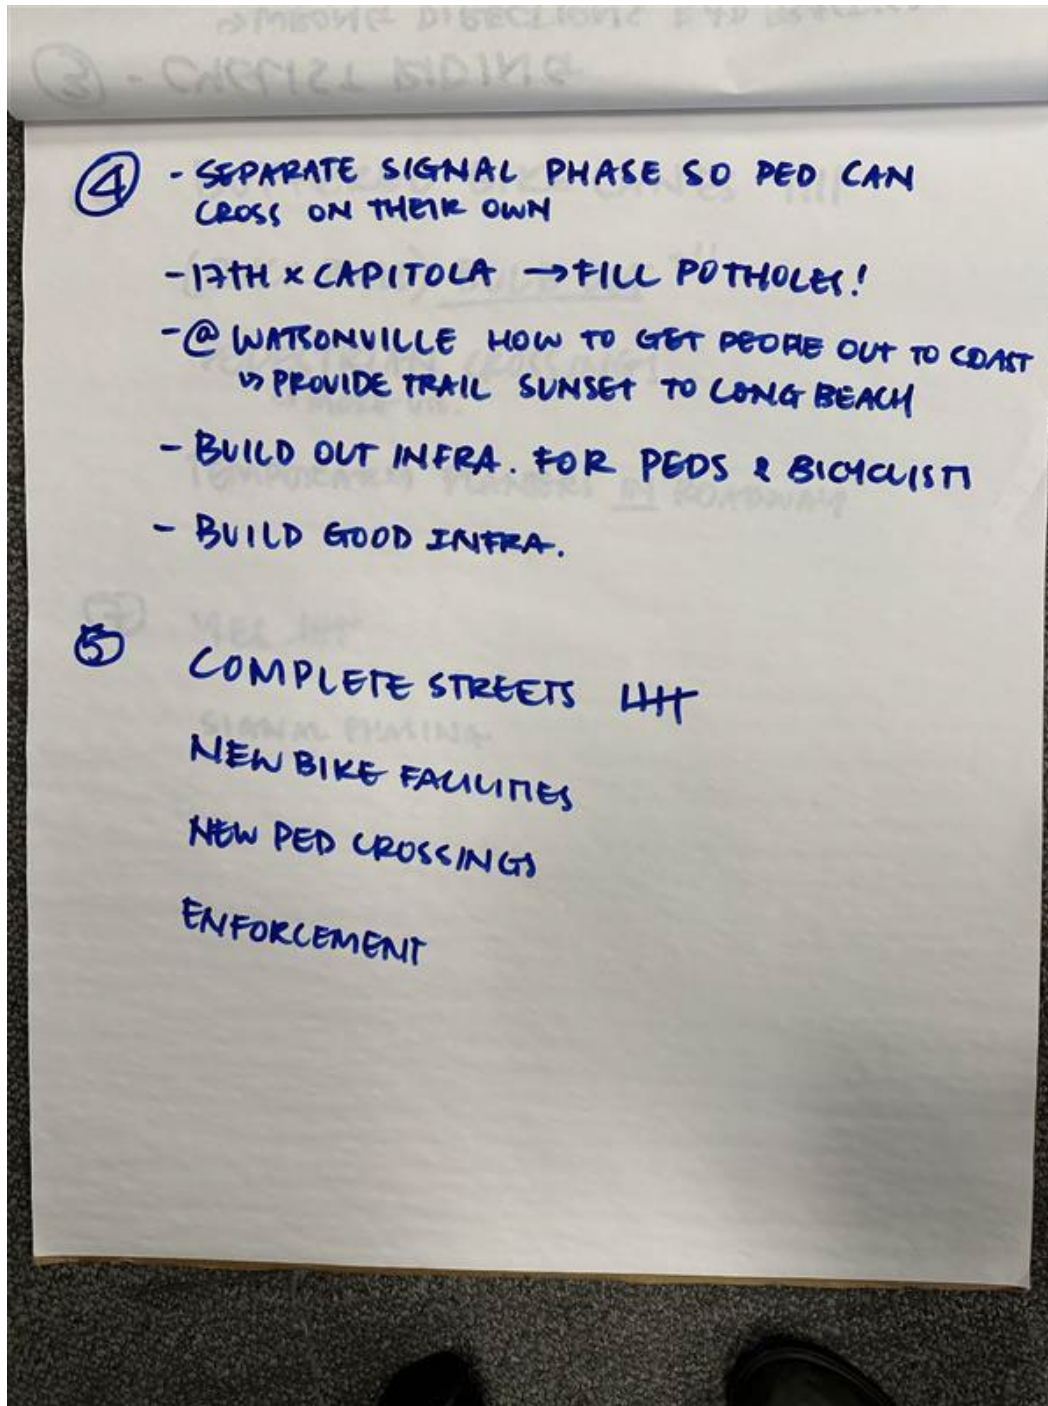 ④ - SEPARATE SIGNAL PHASE SO PED CAN
CROSS ON THEIR OWN
- 17TH x CAPITOLA → FILL POTHOLES!
- @ WATSONVILLE HOW TO GET PEOPLE OUT TO COAST
↳ PROVIDE TRAIL SUNSET TO LONG BEACH
- BUILD OUT INFRA. FOR PEDS & BICYCLISTS
- BUILD GOOD INFRA.
⑤ COMPLETE STREETS
NEW BIKE FACILITIES
NEW PED CROSSINGS
ENFORCEMENT